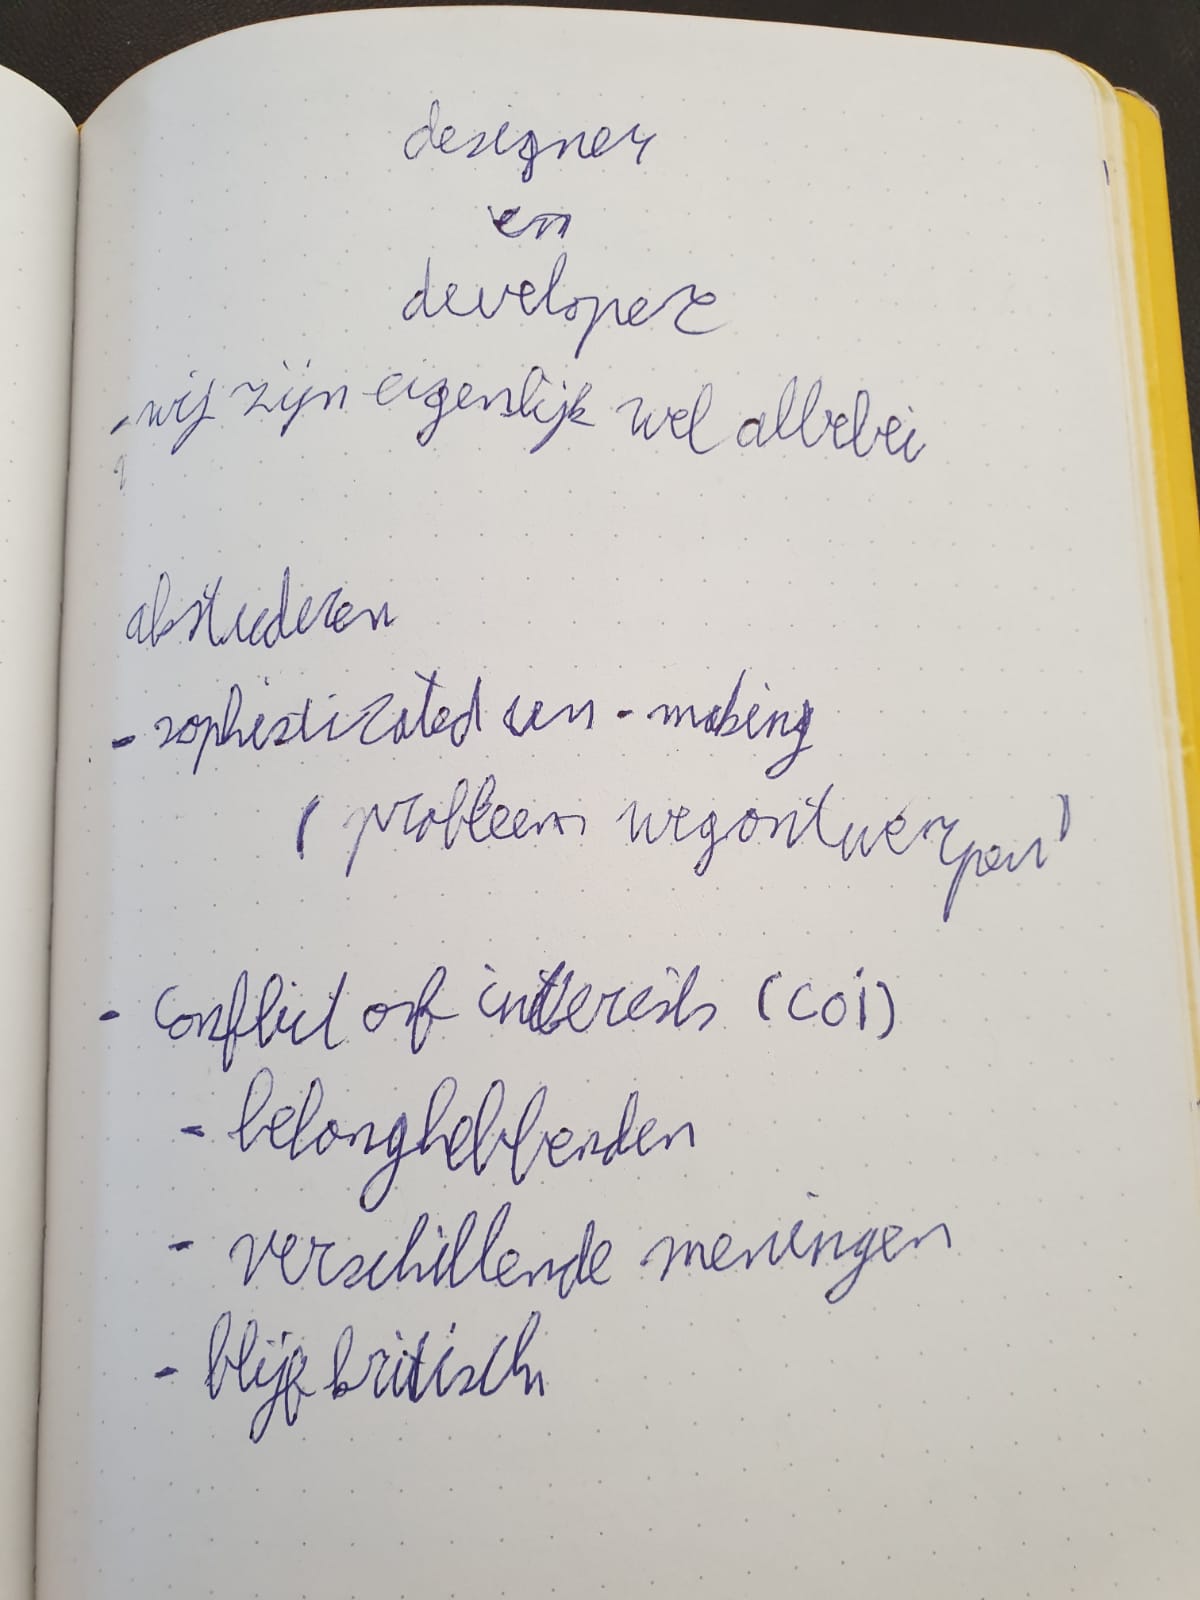 designer
en
developer
- wij zijn eigenlijk wel allebei
abstuderen
- sophisticated un-making
( probleem wegontwerpen )
- Conflict of interests (COI)
- belanghebbenden
- verschillende meningen
- blijf kritisch